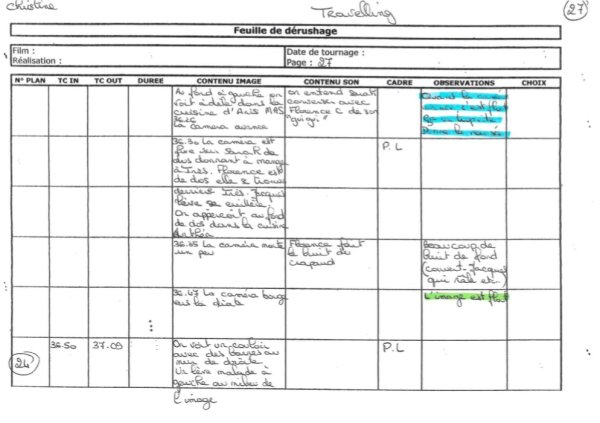 Christine
Travelling
27
Feuille de dérushage
Film :
Réalisation :
Date de tournage :
Page : 27
N° PLAN TC IN TC OUT DUREE CONTENU IMAGE CONTENU SON CADRE OBSERVATIONS CHOIX
Au fond à gauche on
voit à droite dans la
cuisine d'Avis MAS
36.26
La camera avance
on entend Sarah
converser avec
Florence C de son
36.30 La camera est
fixe sur Sarah de
dos donnant à manger
à Inès. Florence est
de dos elle
P.L
derrière Inès. Jacques
lève sa cuillère.
On apperçoit au fond
de dos dans la cuisine
36.45 La camera monte
un peu
Florence fait
le bruit du
crapaud
Beaucoup de
bruit de fond
(couvert-Jacques
qui râle etc..)
36.47 La camera bouge
sur la droite
L'image est flou
24
36.50
37.09
On voit un couloir
avec des barres au
mur de droite
Un lève malade à
gauche au milieu de
l'image
P.L